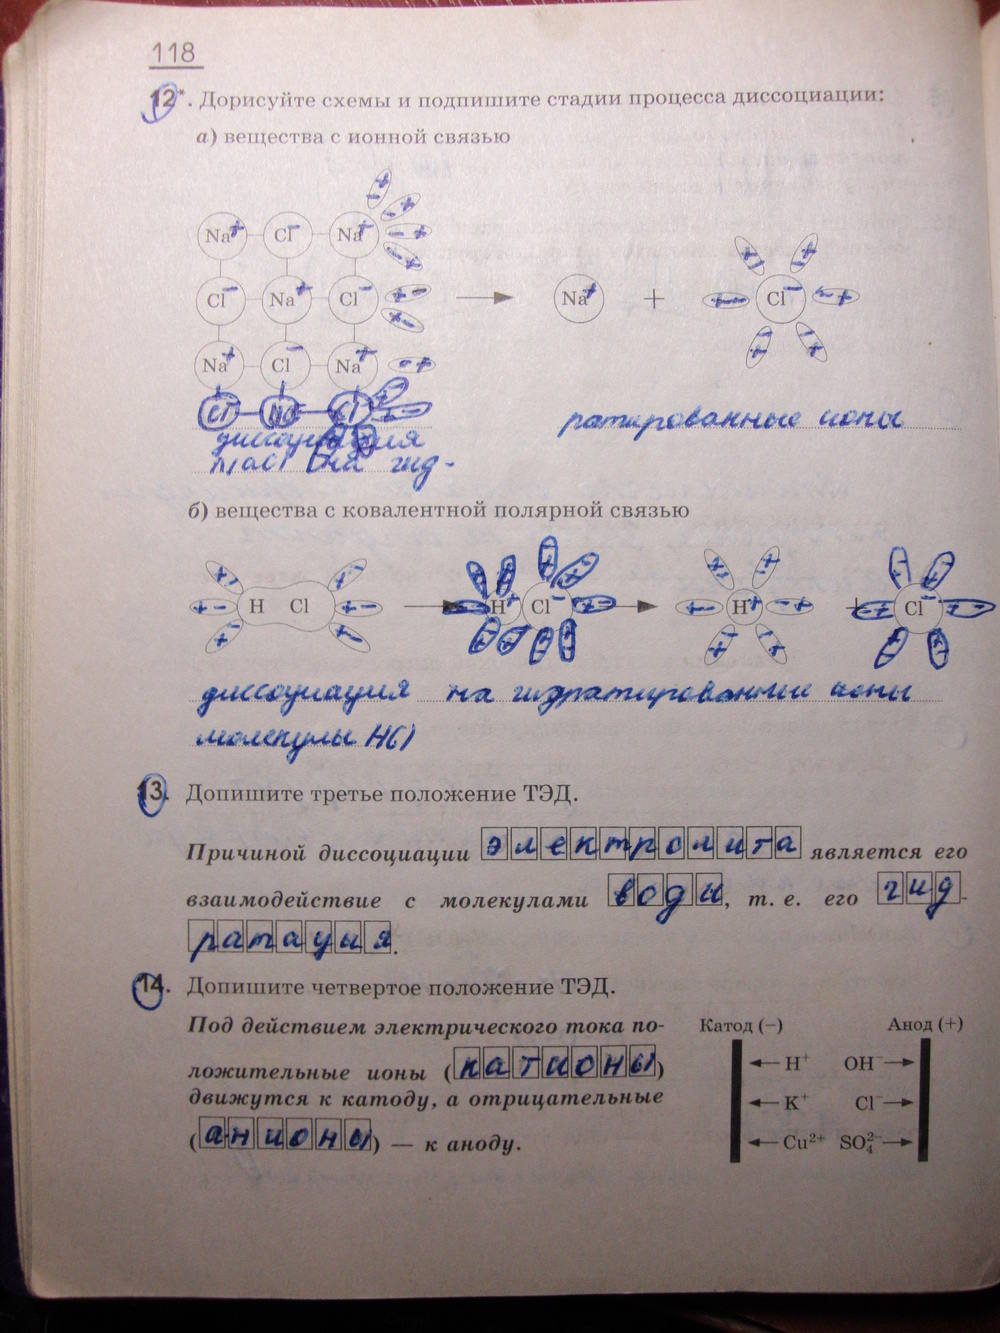 118
12*. Дорисуйте схемы и подпишите стадии процесса диссоциации:
а) вещества с ионной связью
Na+ Cl− Na+
Cl− Na+ Cl− → Na+ + Cl−
Na+ Cl− Na+
Cl Na Cl
диссоциация ратированные ионы
NaCl на гид-
б) вещества с ковалентной полярной связью
H Cl → H+ Cl− → H+ + Cl−
диссоциация на гидратированные ионы
молекулы HCl
13. Допишите третье положение ТЭД.
Причиной диссоциации электролита является его
взаимодействие с молекулами воды, т. е. его гид-
ратация.
14. Допишите четвертое положение ТЭД.
Под действием электрического тока по-
ложительные ионы (катионы)
движутся к катоду, а отрицательные
(анионы) — к аноду.
Катод (−) Анод (+)
← H⁺ OH⁻ →
← K⁺ Cl⁻ →
← Cu²⁺ SO₄²⁻ →